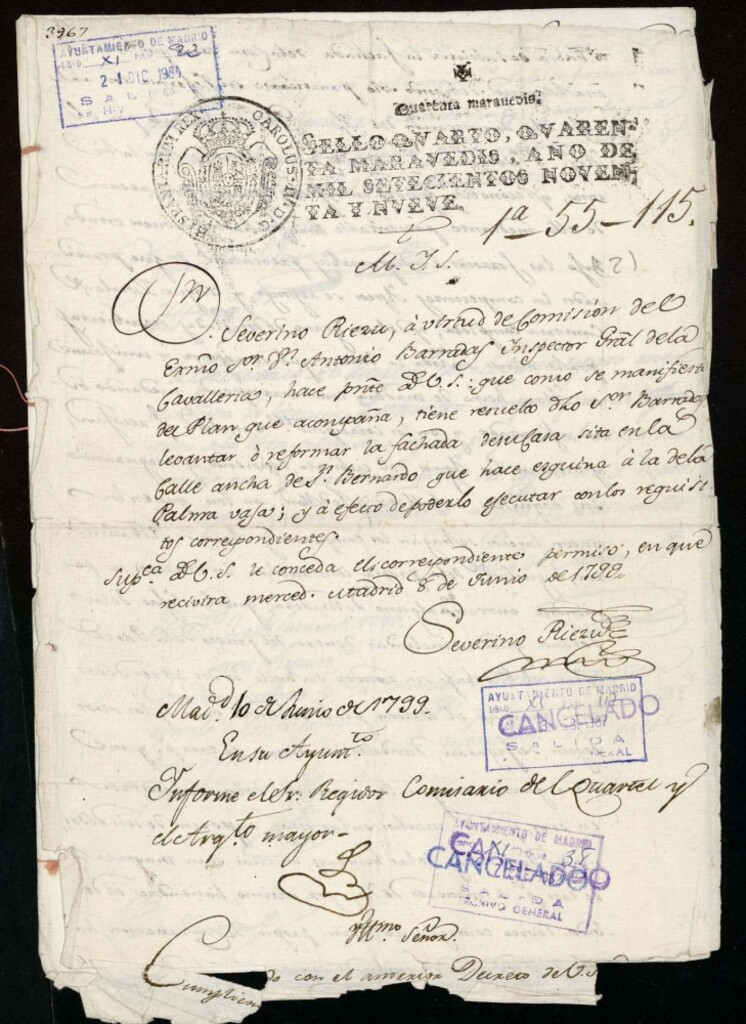 3967
AYUNTAMIENTO DE MADRID
XI 82
21 DIC. 1984
SAL
Quarenta maravedis.
HISPANIARUM REX CAROLUS IV D G
SELLO QVARTO, QVAREN-
TA MARAVEDIS, AÑO DE
MIL SETECIENTOS NOVEN-
TA Y NVEVE.
1ª-55-115.
M. I. S.
Dn. Severino Riezu, à virtud de Comisión del
Exmo Sor. Dn. Antonio Barradas Inspector Gral de la
Cavalleria, hace pnte à V. S.: que como se manifiesta
del Plan que acompaña, tiene resuelto dho Sor. Barradas
levantar ò reformar la fachada de su Casa sita en la
Calle ancha de Sn. Bernardo que hace esquina à la de la
Palma vaja; y à efecto de poderlo ejecutar con los requisi-
tos correspondientes.
Supca. à V. S. le conceda el correspondiente permiso, en que
recivira merced. Madrid 8 de Junio de 1799.
Severino Riezu
Madd. 10 de Junio de 1799.
En su Ayuntto.
Informe el Sr. Regidor Comisario del Quartel y
el Arqto mayor-
AYUNTAMIENTO DE MADRID
XI
CANCELADO
SALIDA
AYUNTAMIENTO DE MADRID
XI 38
CANCELADO
SALIDA
ARCHIVO GENERAL
Yllmo. Señor.
Cumplien do con el anterior Decreto de V. S.